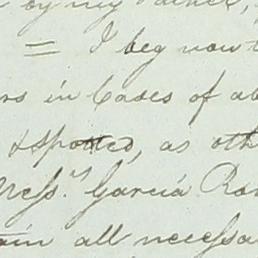 by my Father,
= I beg now t
rs in Cases of ab
& spotted, as oth
Mess.rs Garcia Ra
ain all necessa